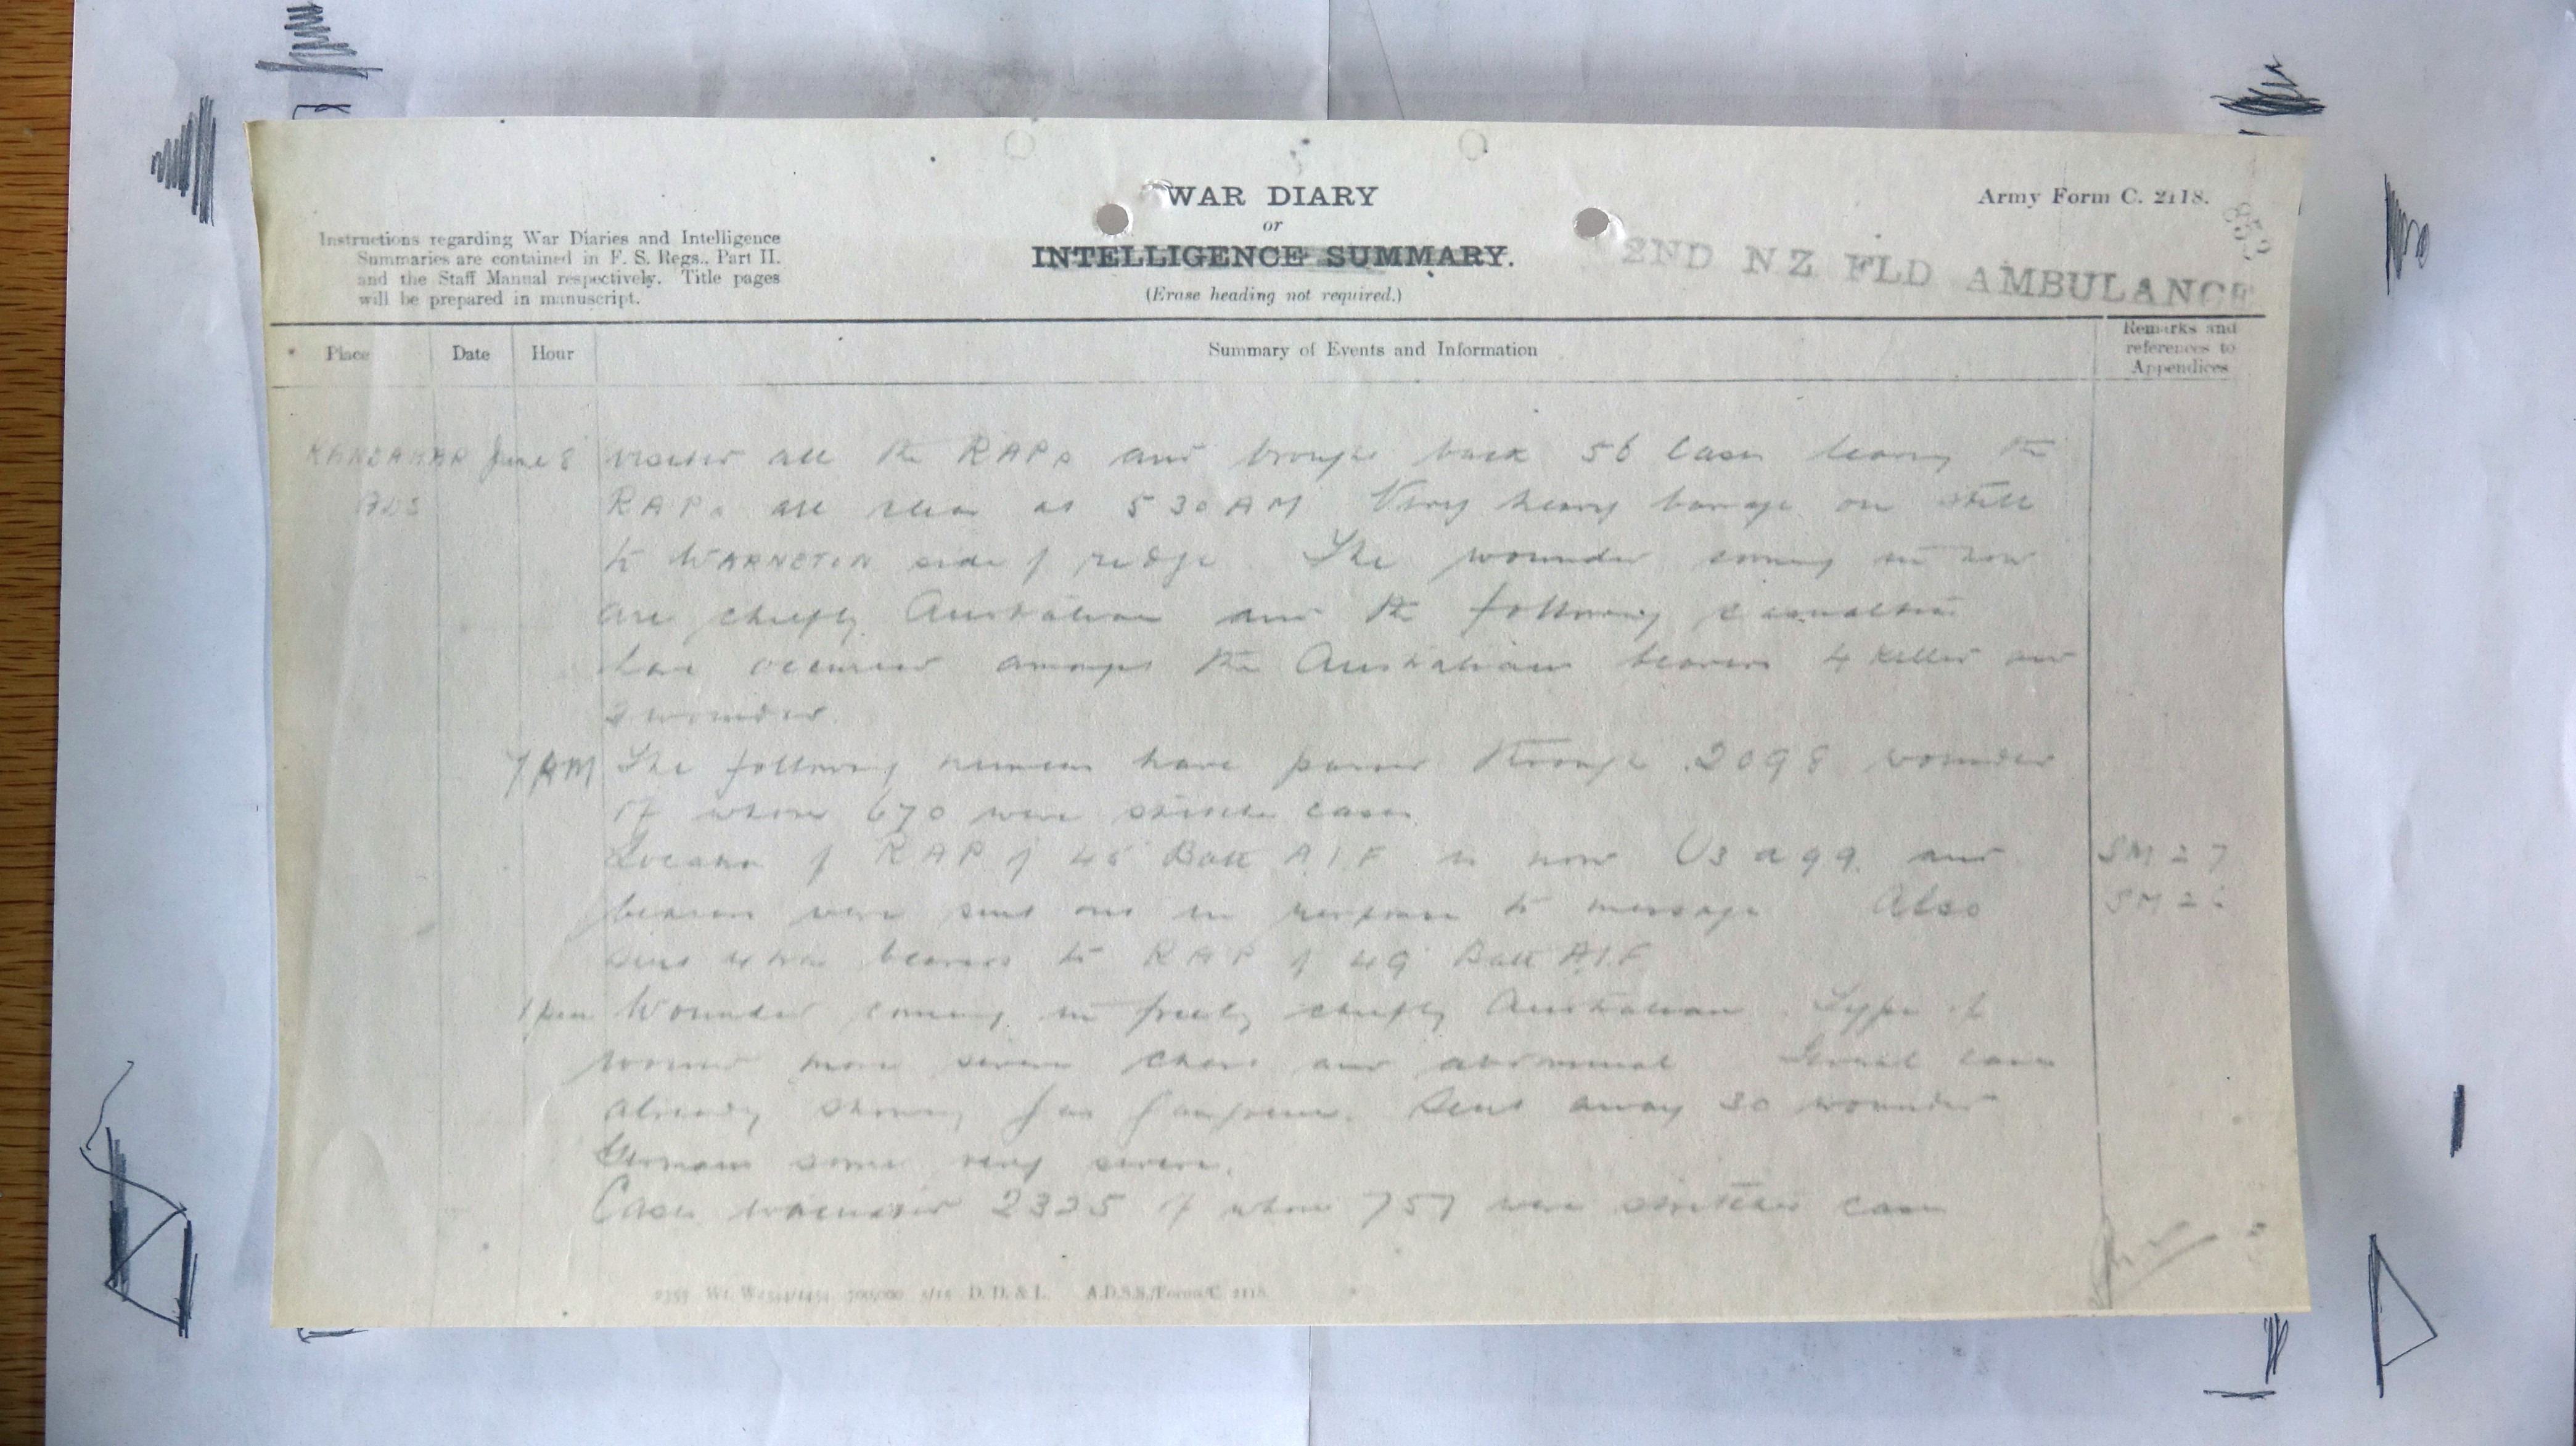 WAR DIARY
or
INTELLIGENCE SUMMARY.
(Erase heading not required.)
Army Form C. 2118.
853
Instructions regarding War Diaries and Intelligence
Summaries are contained in F. S. Regs., Part II.
and the Staff Manual respectively. Title pages
will be prepared in manuscript.
2ND NZ FLD AMBULANCE
Place Date Hour Summary of Events and Information Remarks and
references to
Appendices
KANDAHAR June 8 visited all the RAPs and brought back 56 cases leaving the
ADS RAPs all clear at 5 30 AM Very heavy barrage on still
to WARNETON side of ridge. The wounded coming in now
are chiefly Australian and the following casualties
have occurred amongst the Australian bearers 4 killed and
wounded.
7 AM The following numbers have passed through 2098 wounded
of whom 670 were stretcher cases
Location of RAP of 45 Batt A.I.F is now and SM 27
bearers were sent out in response to message Also SM 26
sent extra bearers to RAP of 49 Batt A.I.F.
1 pm Wounded coming in freely chiefly Australian. Type of
wound more severe chest and abdominal Several cases
already showing gas gangrene. Sent away 30 wounded
Germans some very severe.
Cases evacuated 2325 of whom 757 were stretcher cases
700,000 D. D. & L. A.D.S.S./Forms/C. 2118.